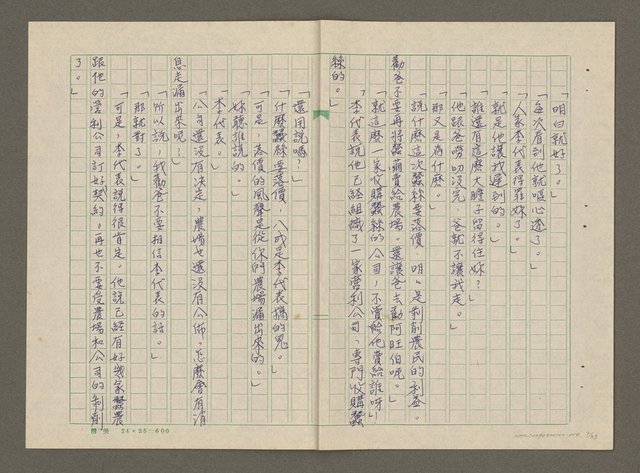 「明白就好了。」
「每次看到他就噁心透了。」
「人家李代表得罪妳了。」
「就是他讓我遲到的。」
「誰還有這麼大膽子留得住妳?」
「他跟爸嘮叨沒完,爸就不讓我走。」
「那又是為什麼。」
「說什麼這次蠶絲要落價,明明是剝削農民的利益。
勸爸不要再將蠶繭賣給農場。還讓爸去勸阿旺伯呢。」
「就這麼一家收購蠶絲的公司,不賣給他賣給誰呀!」
「李代表說他已經組織了一家營利公司,專門收購蠶
絲的。」
「還用說嗎?」
「什麼蠶絲要落價,八成是李代表搞的鬼。」
「可是,落價的風聲是從你們農場漏出來的。」
「妳聽誰說的。」
「李代表。」
「公司還沒有決定,農場也還沒有公佈。怎麼會有消
息走漏出來呢?」
「所以說,我勸爸不要相信李代表的話。」
「那就對了。」
「可是,李代表說得很肯定。他說已經有好幾家蠶農
跟他的營利公司訂好契約,再也不要受農場和公司的剝削
了。」
24×25=600